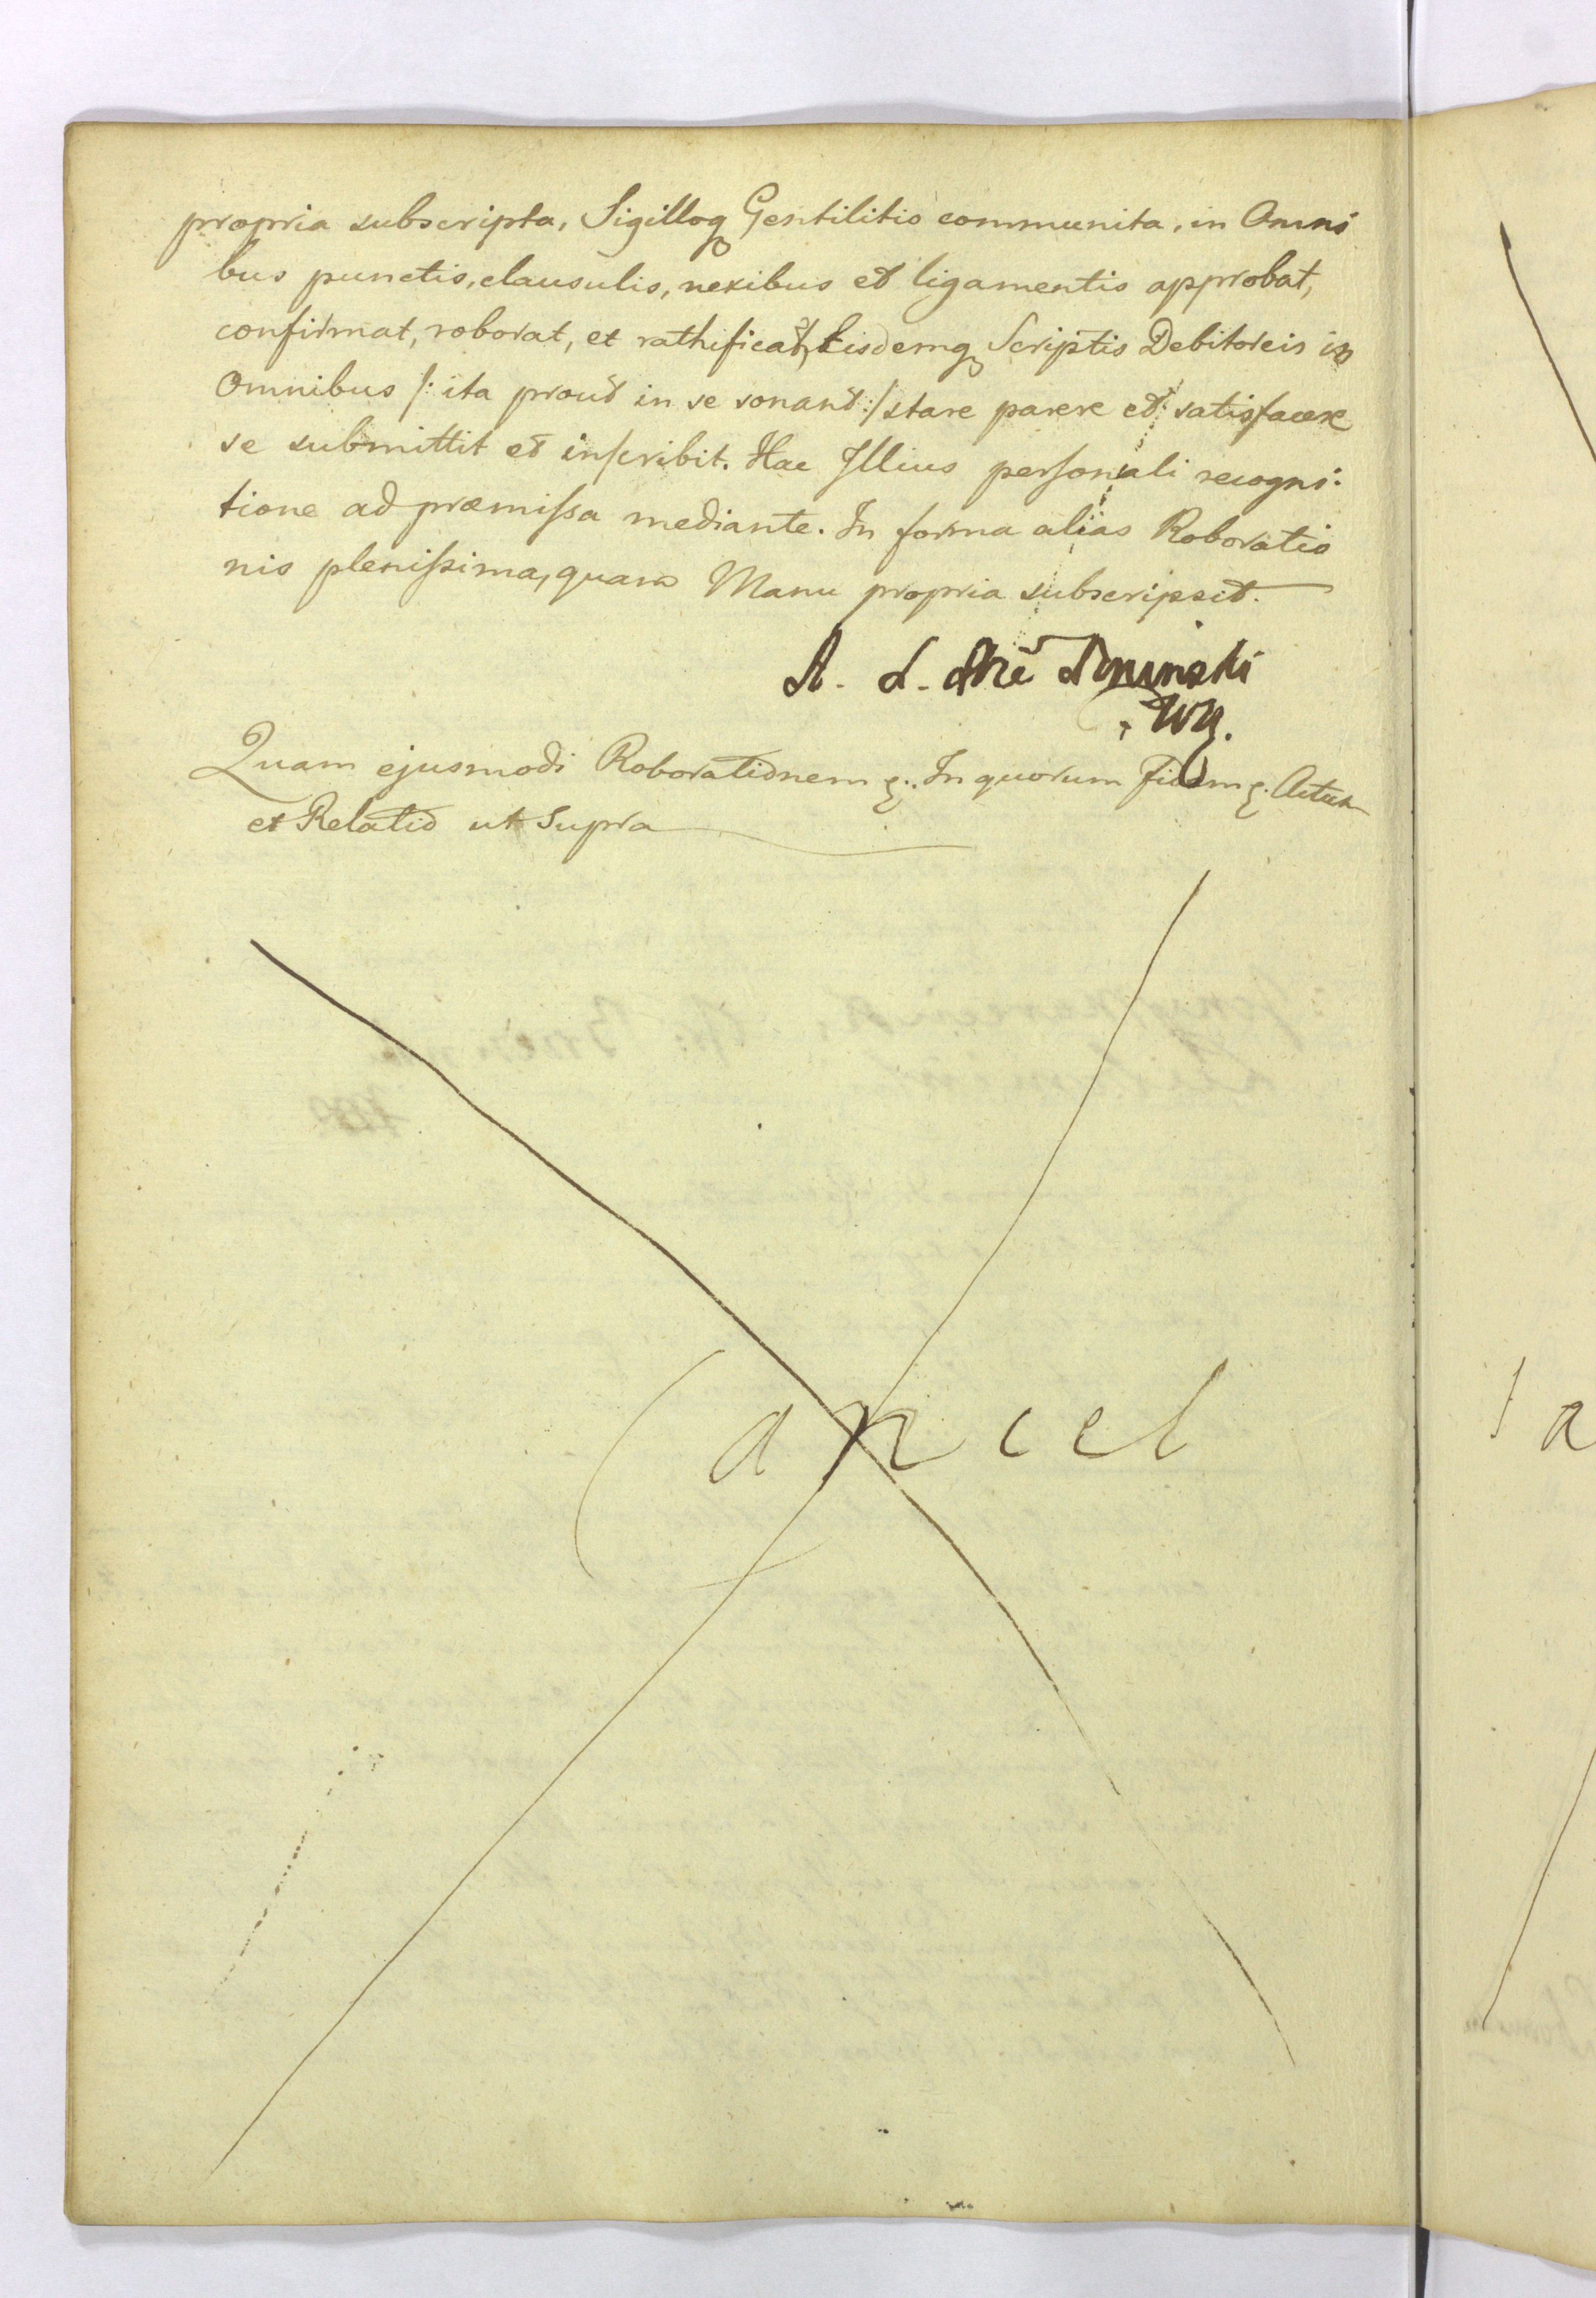 propria subscripta, Sigilloq Gentilitio communita, in Omni
bus punctis, clausulis, nexibus et ligamentis approbat,
confirmat, roborat, et rathificat, Eisdemq Scriptis Debitoreis in
Omnibus /: ita prout in se sonant :/ stare parere et satisfacere
se submittit et inscribit. Hac Illius personali recogni:
tione ad præmissa mediante. In forma alias Roboratio
nis plenissima, quam Manu propria subscripsit.
A. L.
Quam ejusmodi Roborationem ꝛ. In quorum Fidem ꝛ. Actum
et Relatio ut Supra
Cancel
a